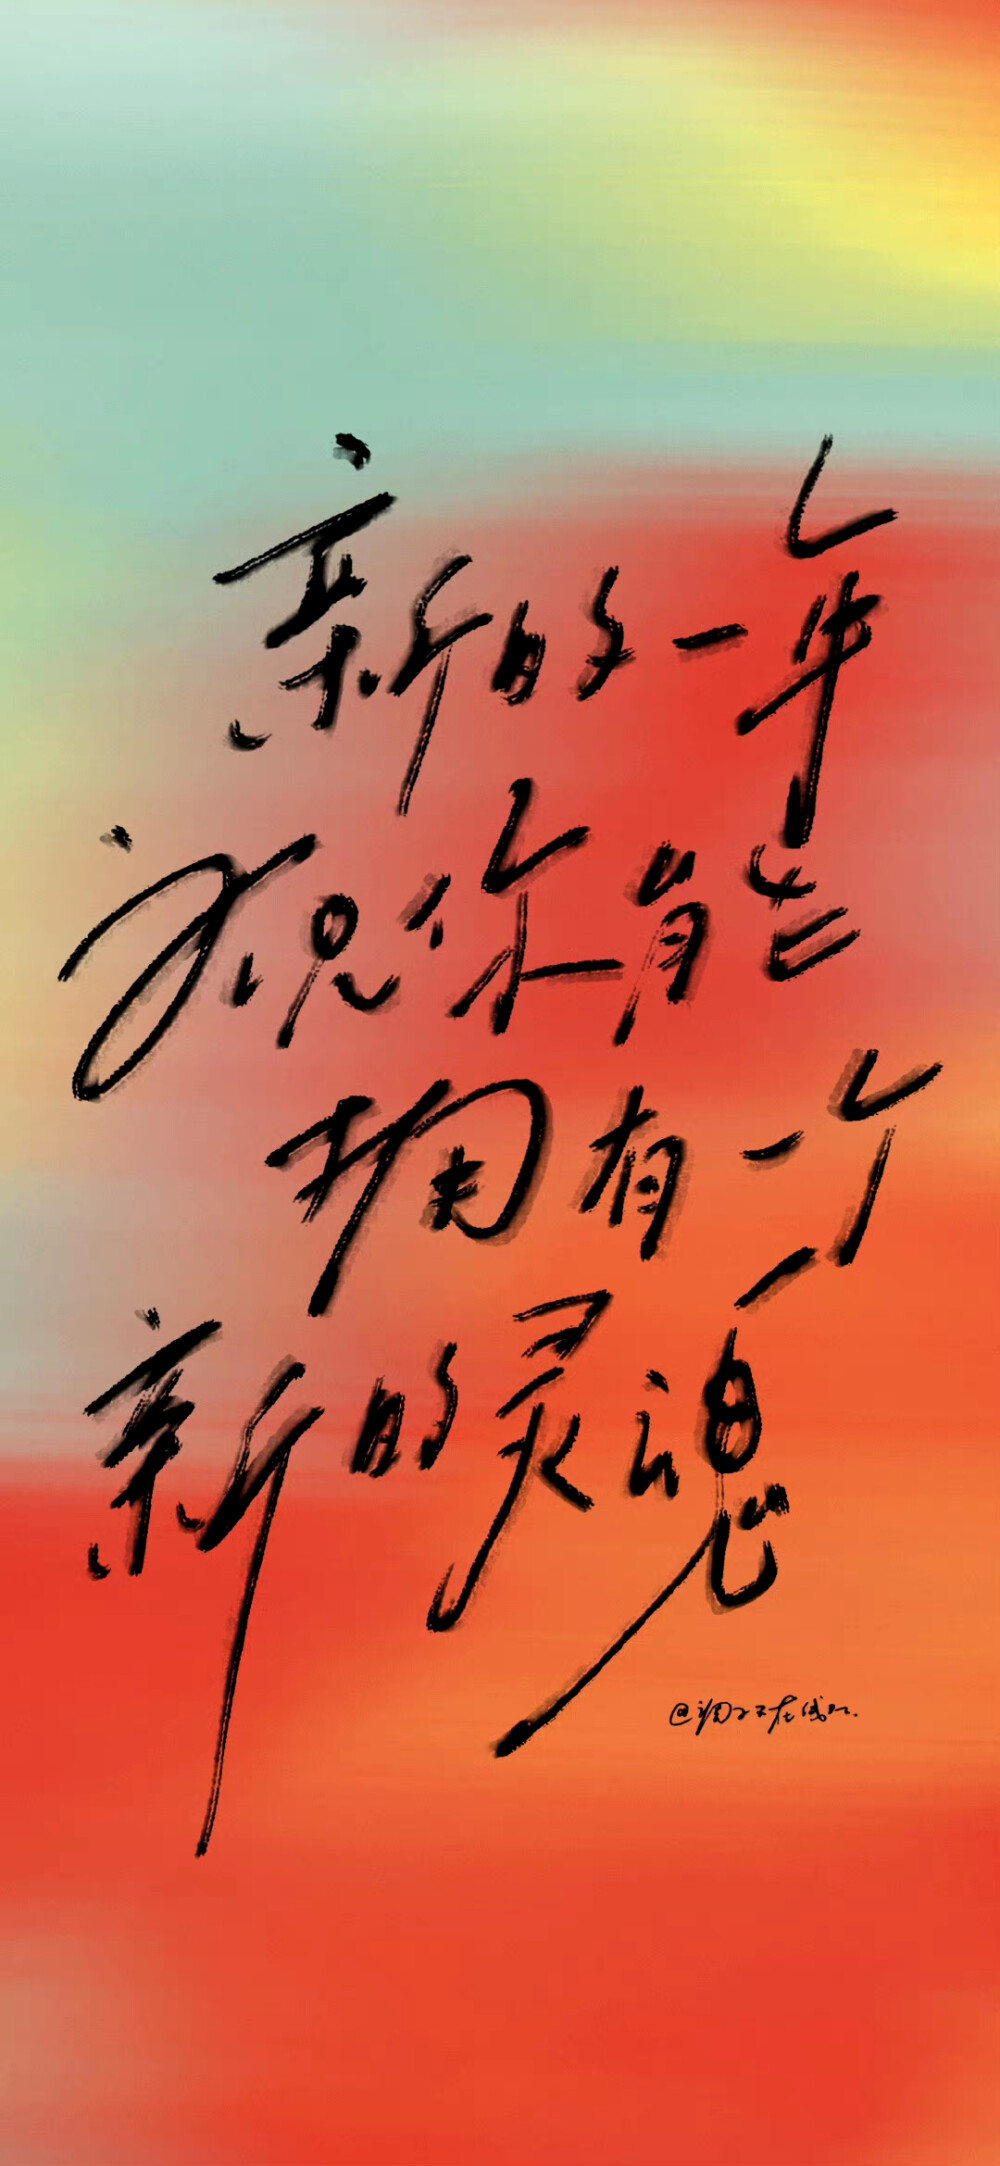 新的一年
祝你能
拥有一个
新的灵魂